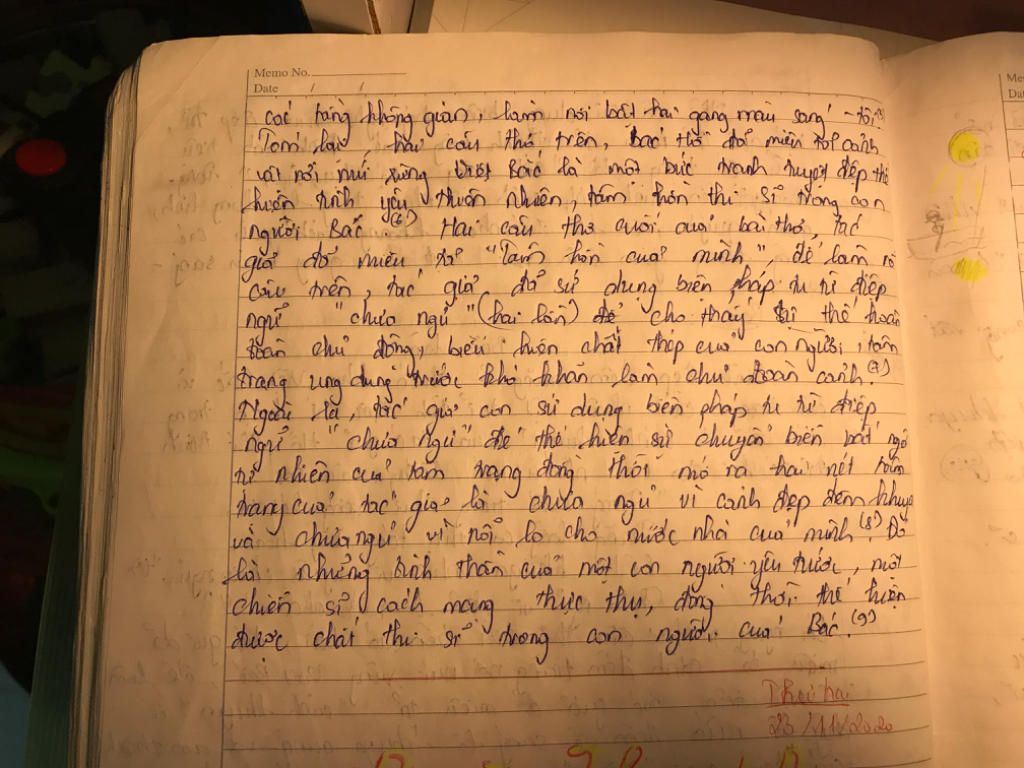 Memo No.
Date / /
các tầng không gian, làm nổi bật hai gang màu sáng - tối.
Tóm lại, hai câu thơ trên, bác thơ đã miêu tả cảnh
vật nơi núi rừng Việt Bắc là một bức tranh tuyệt đẹp thể
hiện tình yêu thiên nhiên, tâm hồn thi sĩ trong con
người Bác. (6) Hai câu thơ cuối của bài thơ, tác
giả đã miêu tả "Tâm hồn của mình", để làm rõ
câu trên, tác giả đã sử dụng biện pháp tu từ điệp
ngữ "chưa ngủ" (hai lần) để cho thấy thi thế hoàn
toàn chủ động, biểu hiện chất thép của con người, tâm
trạng ung dung trước khó khăn làm chủ đoàn cảnh. (7)
Ngoài ra, tác giả còn sử dụng biện pháp tu từ điệp
ngữ "chưa ngủ" để thể hiện sự chuyển biến bất ngờ
tự nhiên của tâm trạng đồng thời mở ra hai nét tâm
trạng của tác giả là chưa ngủ vì cảnh đẹp đêm khuya
và chưa ngủ vì nỗi lo cho nước nhà của mình. (8) Đó
là những tinh thần của một con người yêu nước, một
chiến sĩ cách mạng thực thụ, đồng thời thể hiện
được chất thi sĩ trong con người của Bác. (9)
Thứ hai
23/11/2020
Me
Dat